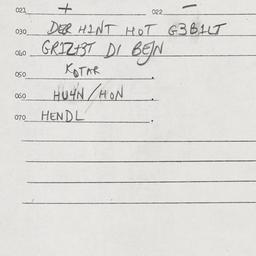 021 + 022 -
030 DER H1NT HOT G3B1LT
040 GRIZ+3T DI BEJN
050 KOTAR
060 HU4N/HON
070 HENDL